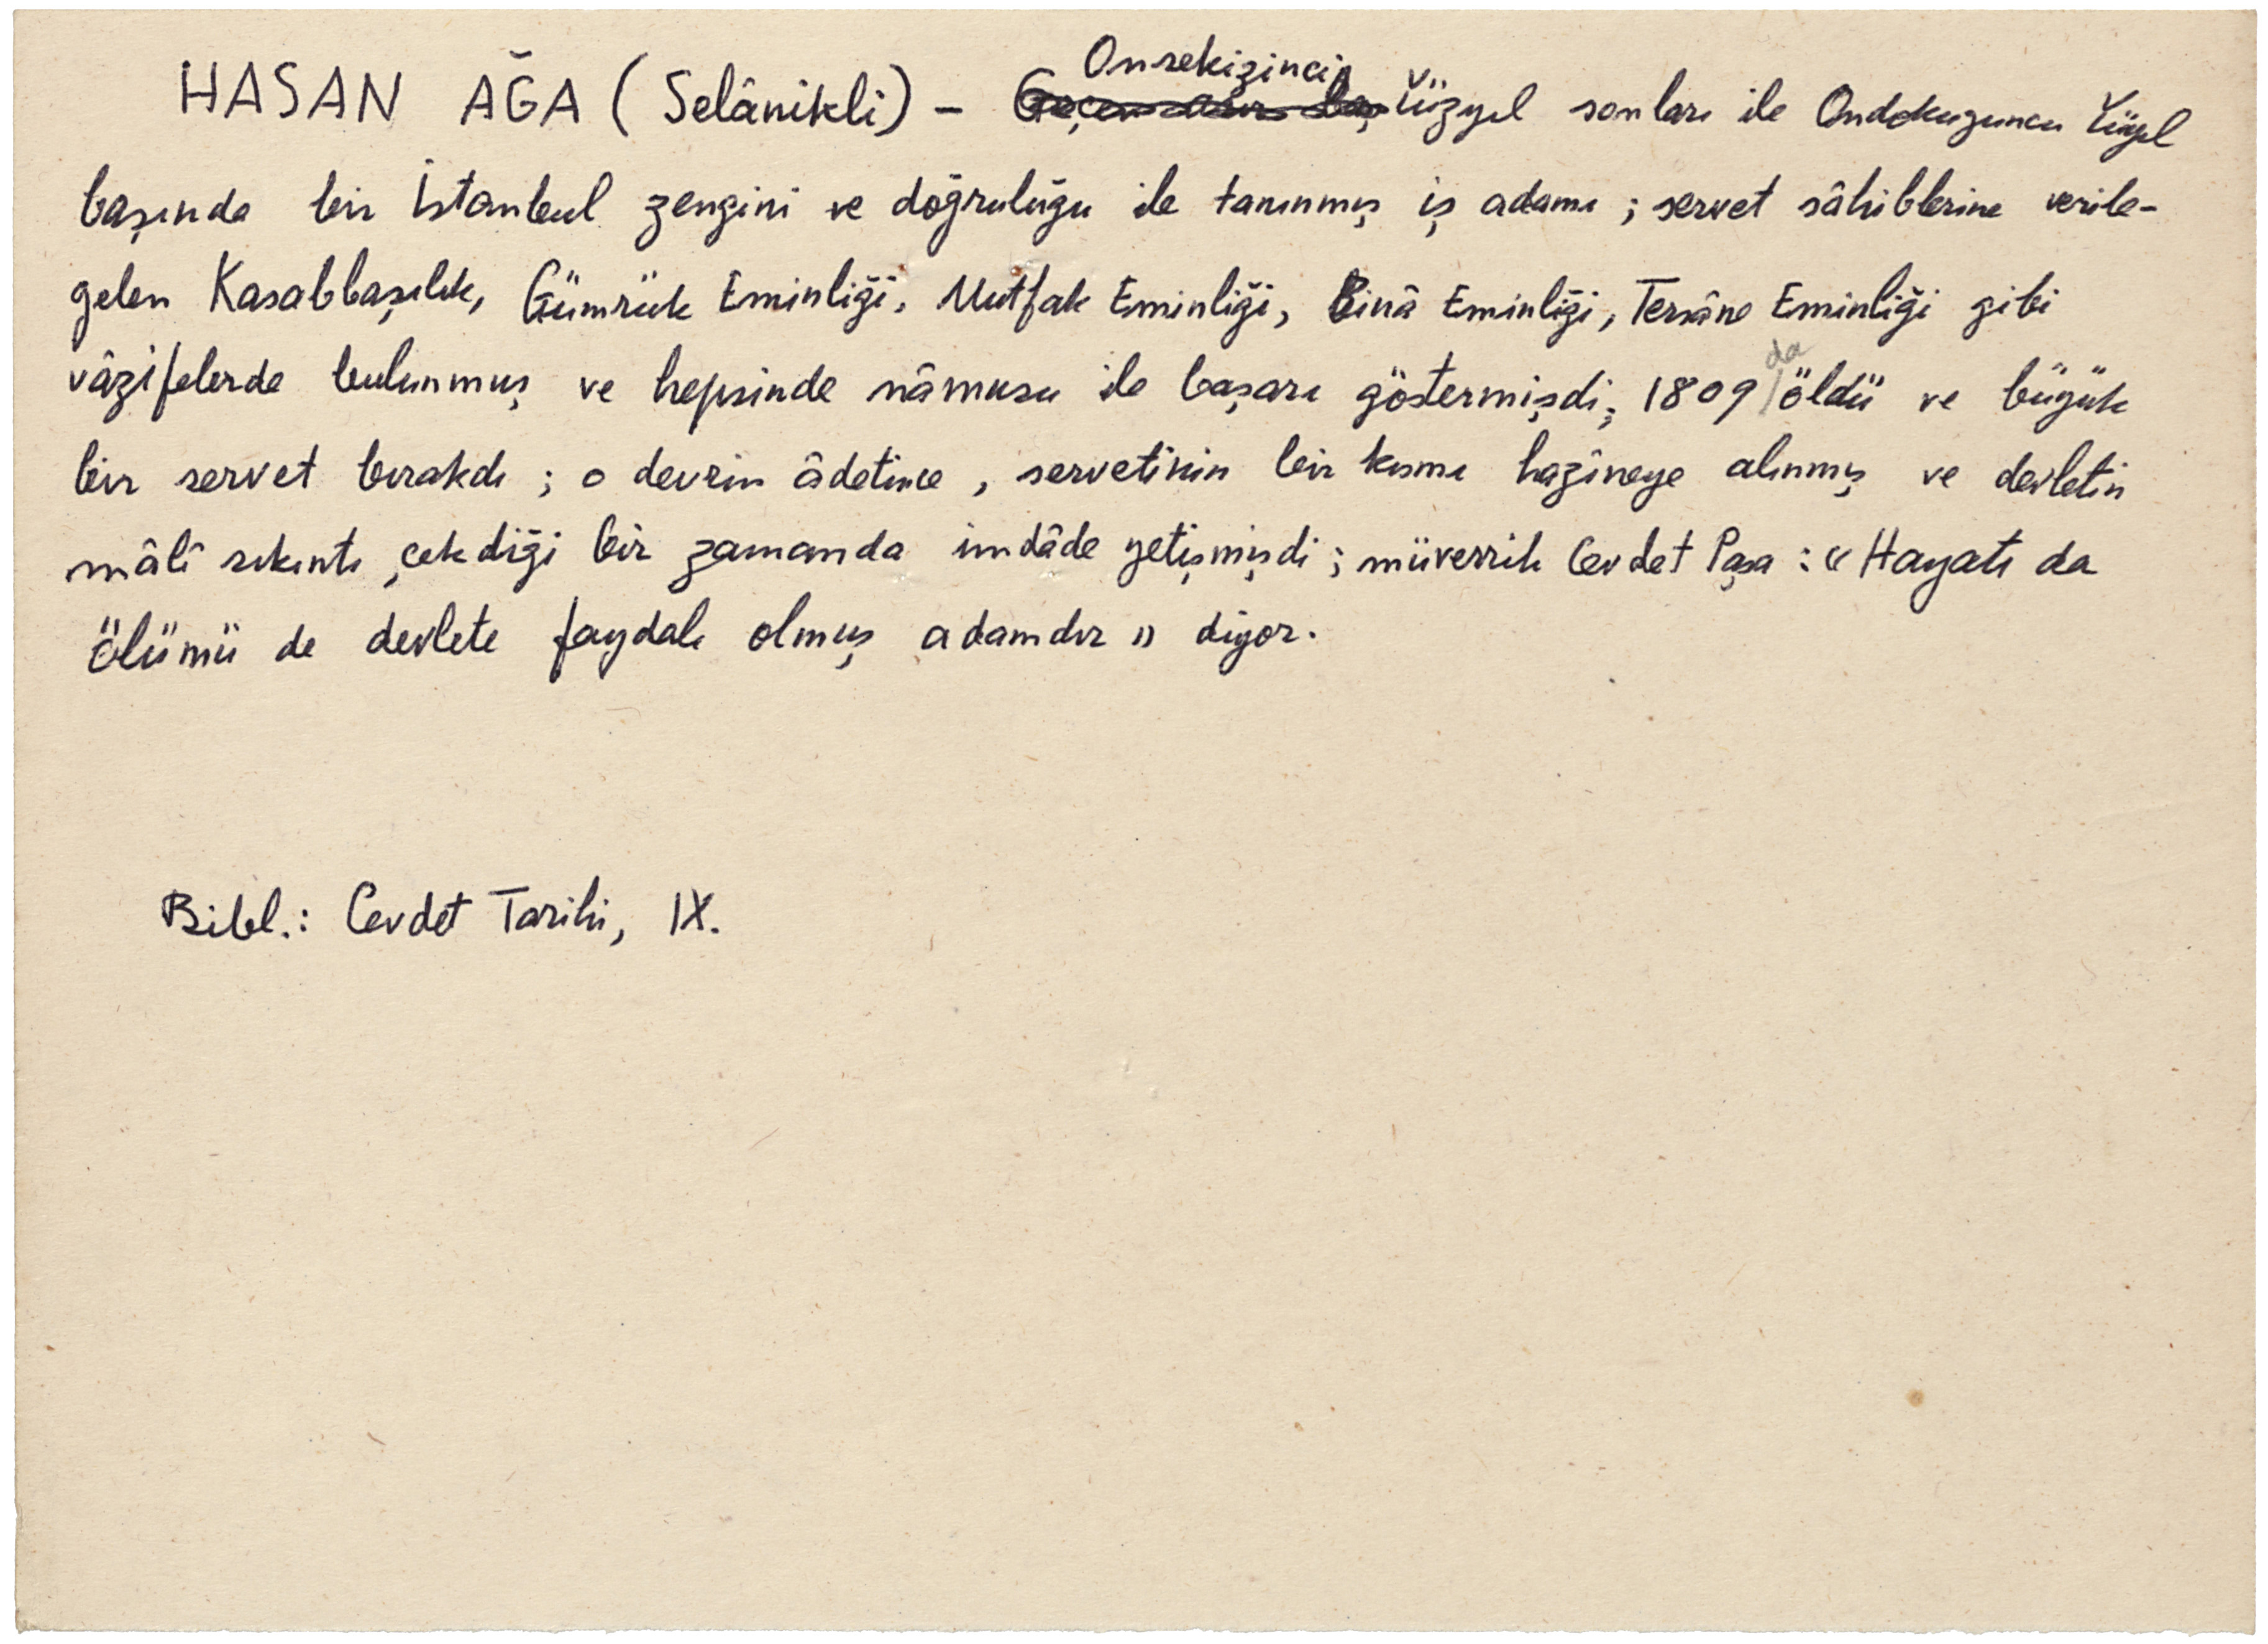 HASAN AĞA (Selânikli) - Onsekizinci Yüzyıl sonları ile Ondokuzuncu Yüzyıl
başında bir İstanbul zengini ve doğruluğu ile tanınmış iş adamı ; servet sâhiblerine verile-
gelen Kasabbaşılık, Gümrük Eminliği, Mutfak Eminliği, Binâ Eminliği, Tersâne Eminliği gibi
vâzifelerde bulunmuş ve hepsinde nâmusu ile başarı göstermişdi; 1809 da öldü ve büyük
bir servet bırakdı ; o devrin âdetince , servetinin bir kısmı hazîneye alınmış ve devletin
mâlî sıkıntı çekdiği bir zamanda imdâde yetişmişdi ; müverrih Cevdet Paşa : « Hayatı da
ölümü de devlete faydalı olmuş adamdır » diyor.
Bibl.: Cevdet Tarihi, IX.